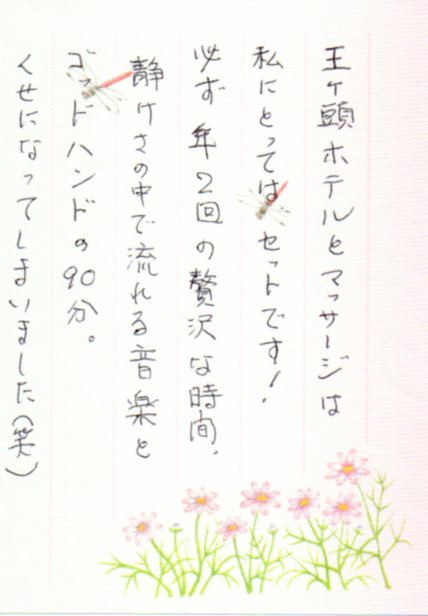 王ヶ頭ホテルとマッサージは
私にとってはセットです!
必ず年2回の贅沢な時間。
静けさの中で流れる音楽と
ゴッドハンドの90分。
くせになってしまいました(笑)